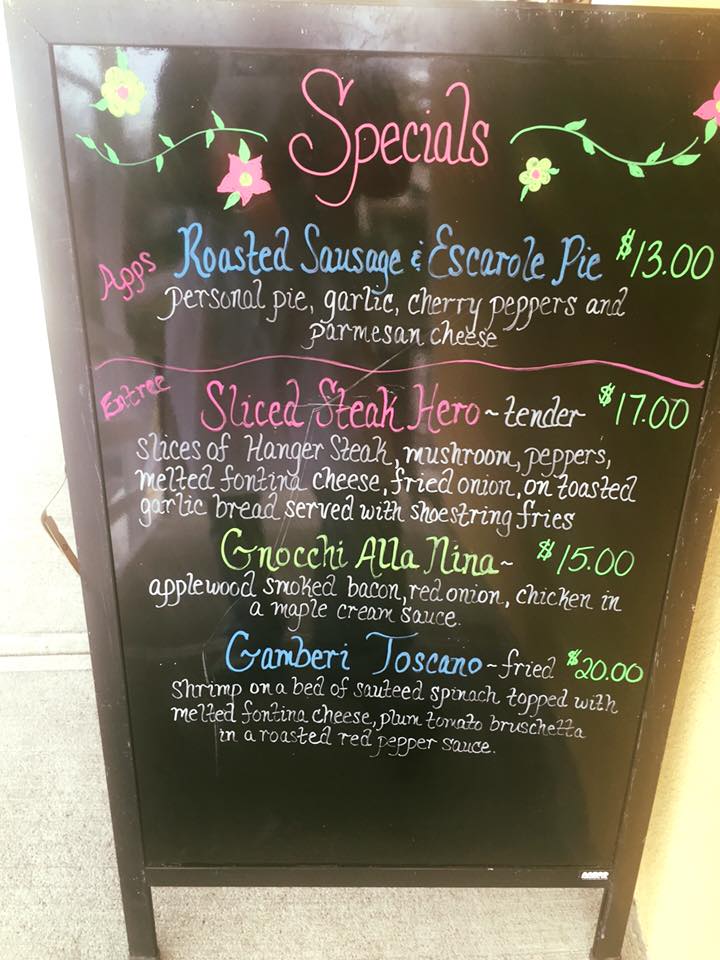 Specials
Apps Roasted Sausage & Escarole Pie $13.00
personal pie, garlic, cherry peppers and
parmesan cheese
Entree Sliced Steak Hero ~ tender $17.00
slices of Hanger Steak, mushroom, peppers,
melted fontina cheese, fried onion, on toasted
garlic bread served with shoestring fries
Gnocchi Alla Nina ~ $15.00
applewood smoked bacon, red onion, chicken in
a maple cream sauce.
Gamberi Toscano ~ fried $20.00
Shrimp on a bed of sauteed spinach topped with
melted fontina cheese, plum tomato bruschetta
in a roasted red pepper sauce.